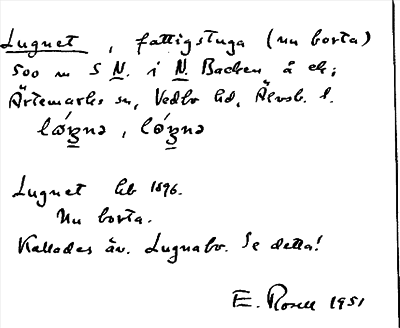 Lugnet, fattigstuga (nu borta)
500 m S N. i N. Backen å ek;
Ärtemarks sn, Vedbo hd, Älvsb. l.
Lugnet lhb 1896.
Nu borta.
Kallades äv. Lugnabo. Se detta!
E. Rosell 1951